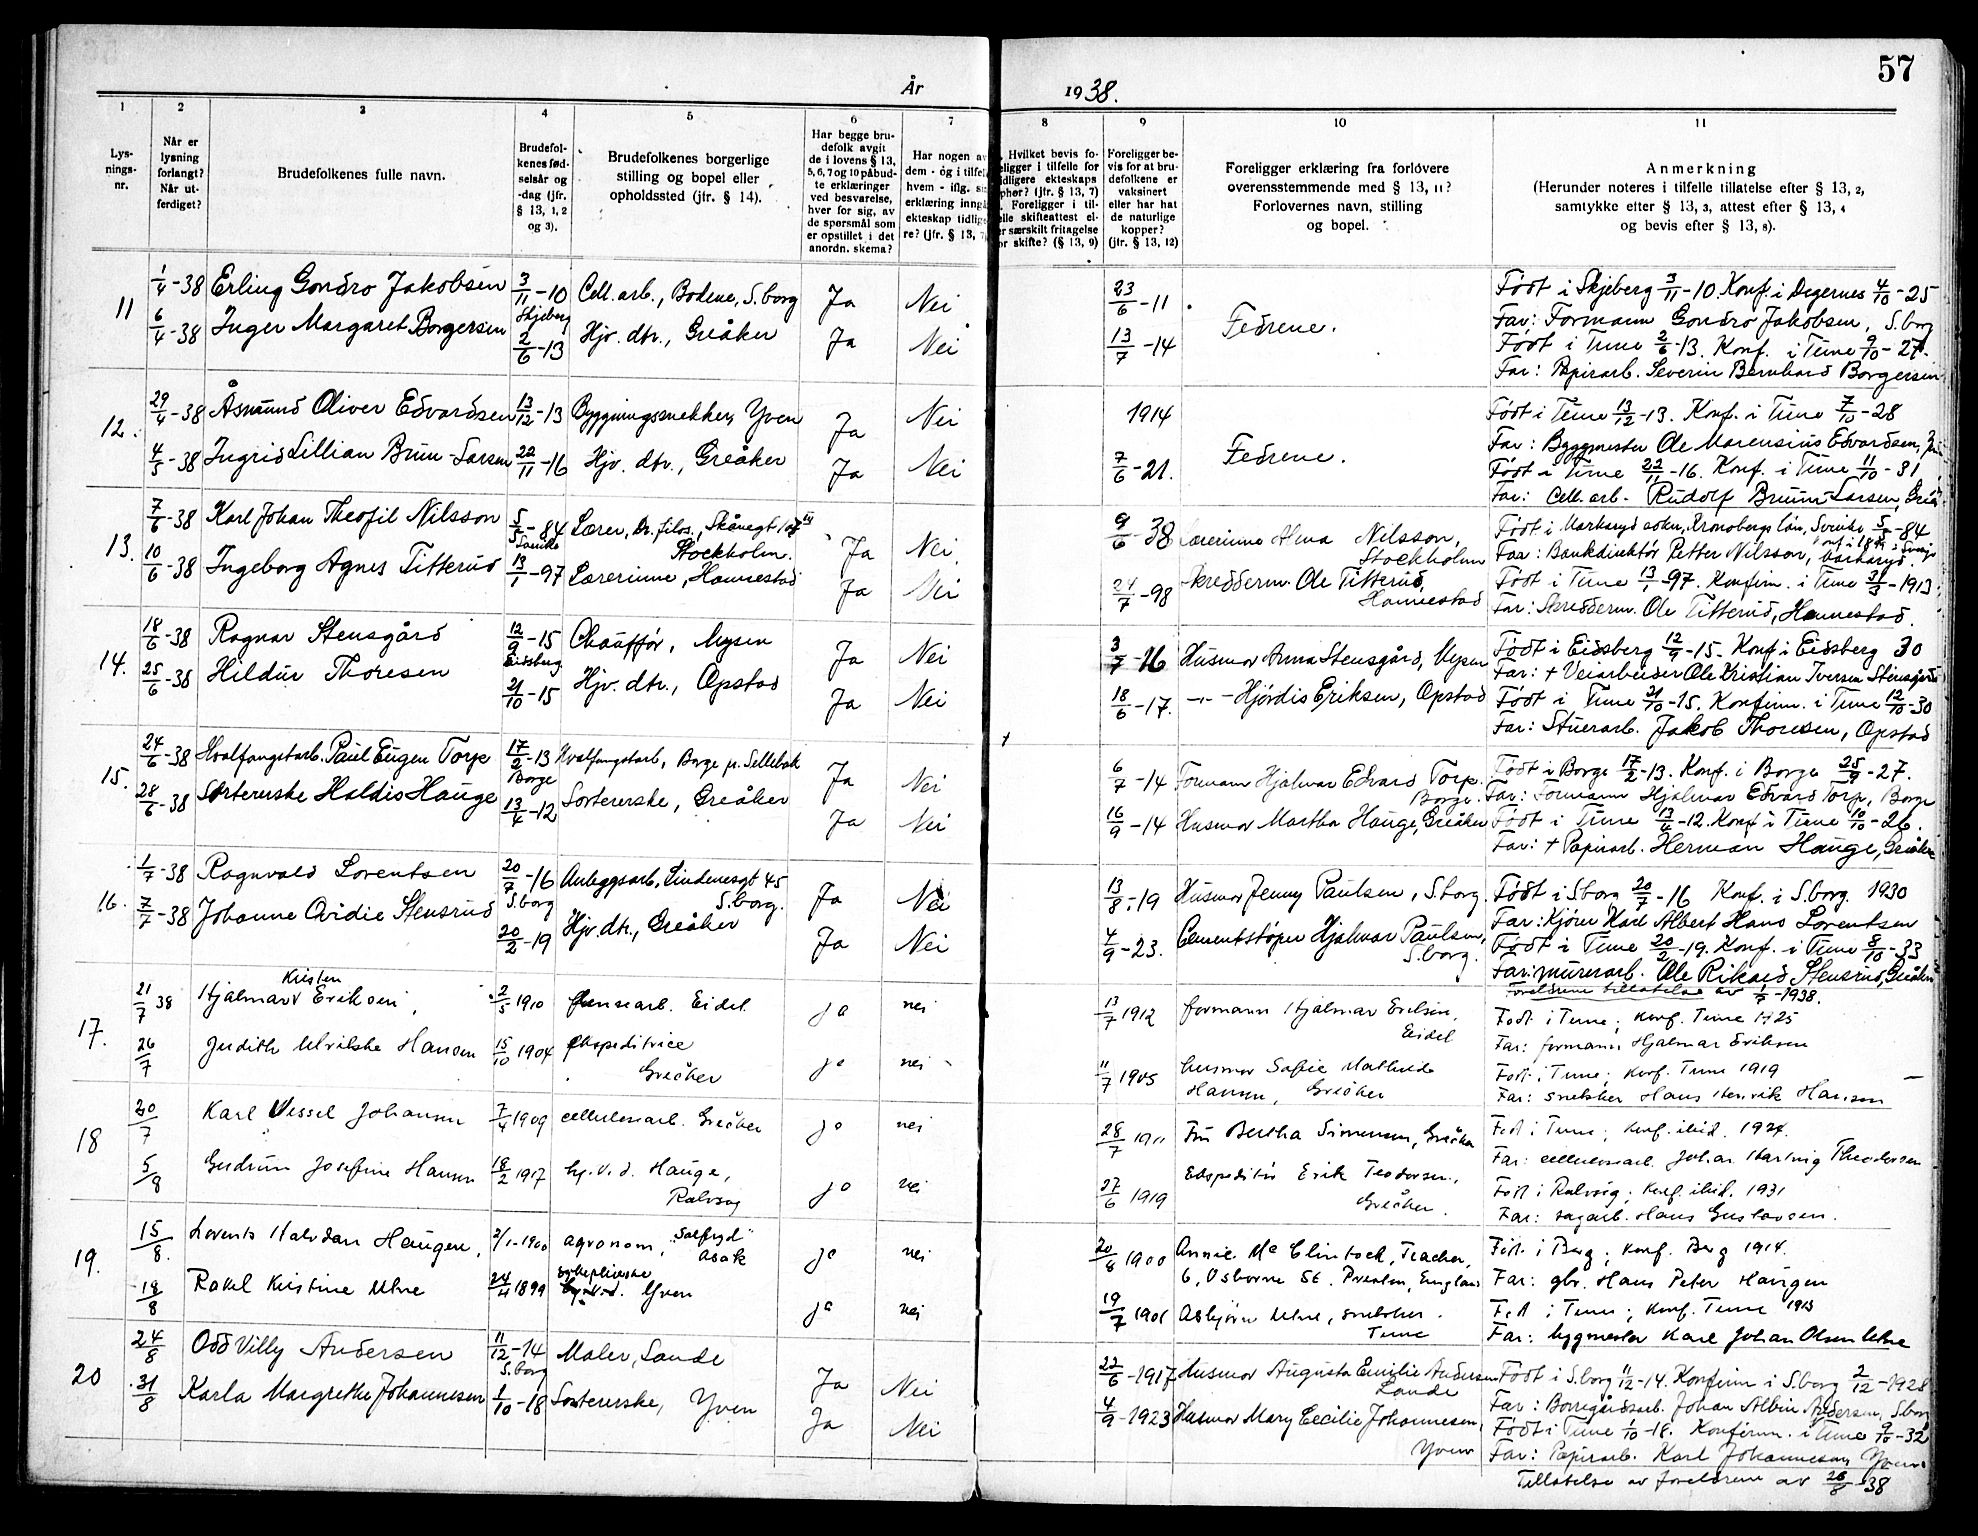 57
År 1938.
1 2 3 4 5 6 7 8 9 10 11
Lysningsnr.
Når er lysning forlangt? Når utferdiget?
Brudefolkenes fulle navn.
Brudefolkenes fødselsår og -dag (jfr. § 13, 1, 2 og 3).
Brudefolkenes borgerlige stilling og bopel eller opholdssted (jfr. § 14).
Har begge brudefolk avgit de i lovens § 13, 5, 6, 7 og 10 påbudte erklæringer ved besvarelse, hver for sig, av de spørsmål som er opstillet i det anordn. skema?
Foreligger bevis for at brudefolkene er vaksinert eller har hat de naturlige kopper? (jfr. § 13, 12)
Foreligger erklæring fra forlovere overensstemmende med § 13, 11? Forlovernes navn, stilling og bopel.
Anmerkning
(Herunder noteres i tilfelle tillatelse efter § 13, 2, samtykke efter § 13, 3, attest efter § 13, 4 og bevis efter § 13, 8).
11 1/4-38 Erling Gondro Jakobsen 3/11-10 Skjeberg Cell.arb., Bodene, S.borg Ja Nei 23/6-11 Fedrene. Født i Skjeberg 3/11-10. Konf. i Degernes 4/10-25
Far: Formann Gondro Jakobsen, S.borg
6/4-38 Inger Margaret Borgersen 2/6-13 Hjv. dtr., Greåker Ja Nei 13/7-14 Født i Tune 2/6-13. Konf. i Tune 9/10-27.
Far: Papirarb. Severin Bernhard Borgersen
12. 29/4-38 Åsmund Oliver Edvardsen 13/12-13 Bygningssnekker, Yven Ja Nei 1914 Fedrene. Født i Tune 13/12-13. Konf. i Tune 7/10-28
Far: Byggmester Ole Marensius Edvardsen,
4/5-38 Ingrid Lillian Bruu-Larsen 22/11-16 Hjv. dtr., Greåker Ja Nei 7/6-21. Født i Tune 22/11-16. Konf. i Tune 11/10-31
Far: Cell. arb. Rudolf Bruun-Larsen,
13. 7/6-38 Karl Johan Theofil Nilsson 5/5-84 Sverike Lærer, Dr. filos., Skånegt Stockholm. Ja Nei 9/6 38 Lærerinne Alma Nilsson, Stockholm Født i Markaryd sokn, Kronobergs län, Sverike 5/5-84
Far: Bankdirektør Petter Nilsson, Markaryd.
10/6-38 Ingeborg Agnes Titterud 13/1-97 Lærerinne, Hannestad Ja Nei 24/7-98 Skredderm. Ole Titterud, Hannestad Født i Tune 13/1-97. Konfirm. i Tune 31/3-1913.
Far: Skredderm. Ole Titterud, Hannestad.
14. 18/6-38 Ragnar Stensgård 12/9-15 Eidsberg Chauffør, Mysen Ja Nei 3/7-16 Husmor Anna Stensgård, Mysen Født i Eidsberg 12/9-15. Konf. i Eidsberg 30
Far: + Veiarbeider Ole Kristian Iversen Stensgård
25/6-38 Hildur Thoresen 21/10-15 Hjv. dtr., Opstad Ja Nei 18/6-17. -"- Hjørdis Eriksen, Opstad Født i Tune 21/10-15. Konfirm. i Tune 12/10-30
Far: Stuerarb. Jakob Thoresen, Opstad
15. 24/6-38 Hvalfangstarb. Paul Eugen Torp 17/2-13 Borge Hvalfangstarb., Borge p. Sellebak Ja Nei 6/7-14 Formann Hjalmar Edvard Torp. Borge. Født i Borge 17/2-13. Konf. i Borge 25/9-27.
Far: Formann Hjalmar Edvard Torp, Borge
28/6-38 Sortererske Haldis Hauge 13/4-12 Sortererske, Greåker Ja Nei 16/9-14 Husmor Martha Hauge, Greåker Født i Tune 13/4-12. Konf. i Tune 10/10-26.
Far: + Papirarb. Herman Hauge, Greåker
16. 1/7-38 Ragnvald Lorentsen 20/7-16 S.borg Anleggsarb., Lindenesgt 45 S.borg. Ja Nei 13/8-19 Husmor Jenny Paulsen, S.borg. Født i S.borg 20/7-16 Konf. i S.borg. 1930
Far: Kjører Karl Albert Hans Lorentsen
7/7-38 Johanne Ovidie Stensrud 20/2-19 Hjv. dtr., Greåker Ja Nei 4/9-23. Cementstøper Hjalmar Paulsen, S.borg. Født i Tune 20/2-19. Konf. i Tune 8/10-33
Far: murerarb. Ole Rikard Stensrud, Greåker
Foreldrene tillatelse av 1/7-1938.
17. 21/7 38 Hjalmar Kristen Eriksen 2/5 1910 Eidet ja nei 13/7 1912 formann Hjalmar Eriksen, Eidet Født i Tune; Konf. Tune 1925
Far: formann Hjalmar Eriksen
26/7 Judith Ulrikke Hansen 15/10 1904 Ekspeditrice Greåker ja nei 11/7 1905 husmor Sofie Mathilde Hansen, Greåker Født i Tune; Konf. Tune 1919
Far: snekker Hans Henrik Hansen
18 20/7 Karl Vessel Johansen 7/4 1909 cellulosearb. Greåker ja nei 28/7 1911 Fru Bertha Simensen, Greåker Født i Tune; Konf. ibid. 1924.
Far: cellulosearb. Johan Hartvig Theodorsen
5/8 Gudrun Josefine Hansen 18/2 1917 hj.v.d. Hauge, Rolvsøy ja nei 27/6 1919 Ekspeditør Erik Teodorsen, Greåker. Født i Rolvsøy; Konf. ibid. 1931
Far: sagarb. Hans Gustavsen.
19. 15/8. Lorents Halvdan Haugen, 2/1-1900 agronom, "Solfryd" Asak ja nei 20/8 1900 Annie Mc Clintock, Teacher, 6, Osborne St. Preston, England Født i Berg; Konf. Berg 1914.
Far: gbr. Hans Peter Haugen
18/8 Rakel Kristine Utne 24/4 1899 sykepleierske Yven ja nei 19/7 1901 Asbjørn Utne, snekker. Tune Født i Tune; Konf. Tune 1913
Far: bygmester Karl Johan Olsen Utne
20 24/8 Odd Villy Andersen 11/12-14 S.borg Maler, Sande Ja Nei 22/6-1917 Husmor Augusta Emilie Andersen Sande Født i S.borg 11/12-14. Konfirm i S.borg 2/12-1928
Far: Borregårdsarb. Johan Albin Andersen, S.borg
31/8 Karla Margrethe Johannesen 1/10-18 Sortererske, Yven Ja Nei 4/9-1923 Husmor Mary Cecilie Johannesen, Yven Født i Tune 1/10-18. Konfirm. i Tune 9/10-32
Far: Papirarb. Karl Johannesen, Yven.
Tillatelse av foreldrene av 26/8-38